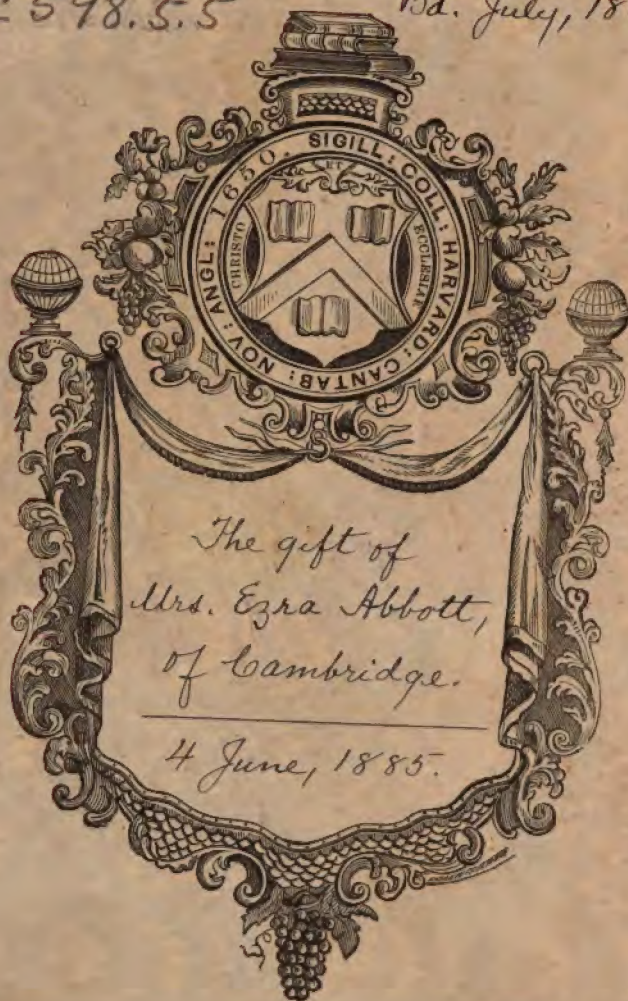 598.5.5
Bd. July, 18
SIGILL: COLL: HARVARD: CANTAB: NOV: ANGL: 1650.
ET
CHRISTO
ECCLESIAE
The gift of
Mrs. Ezra Abbott,
of Cambridge.
4 June, 1885.